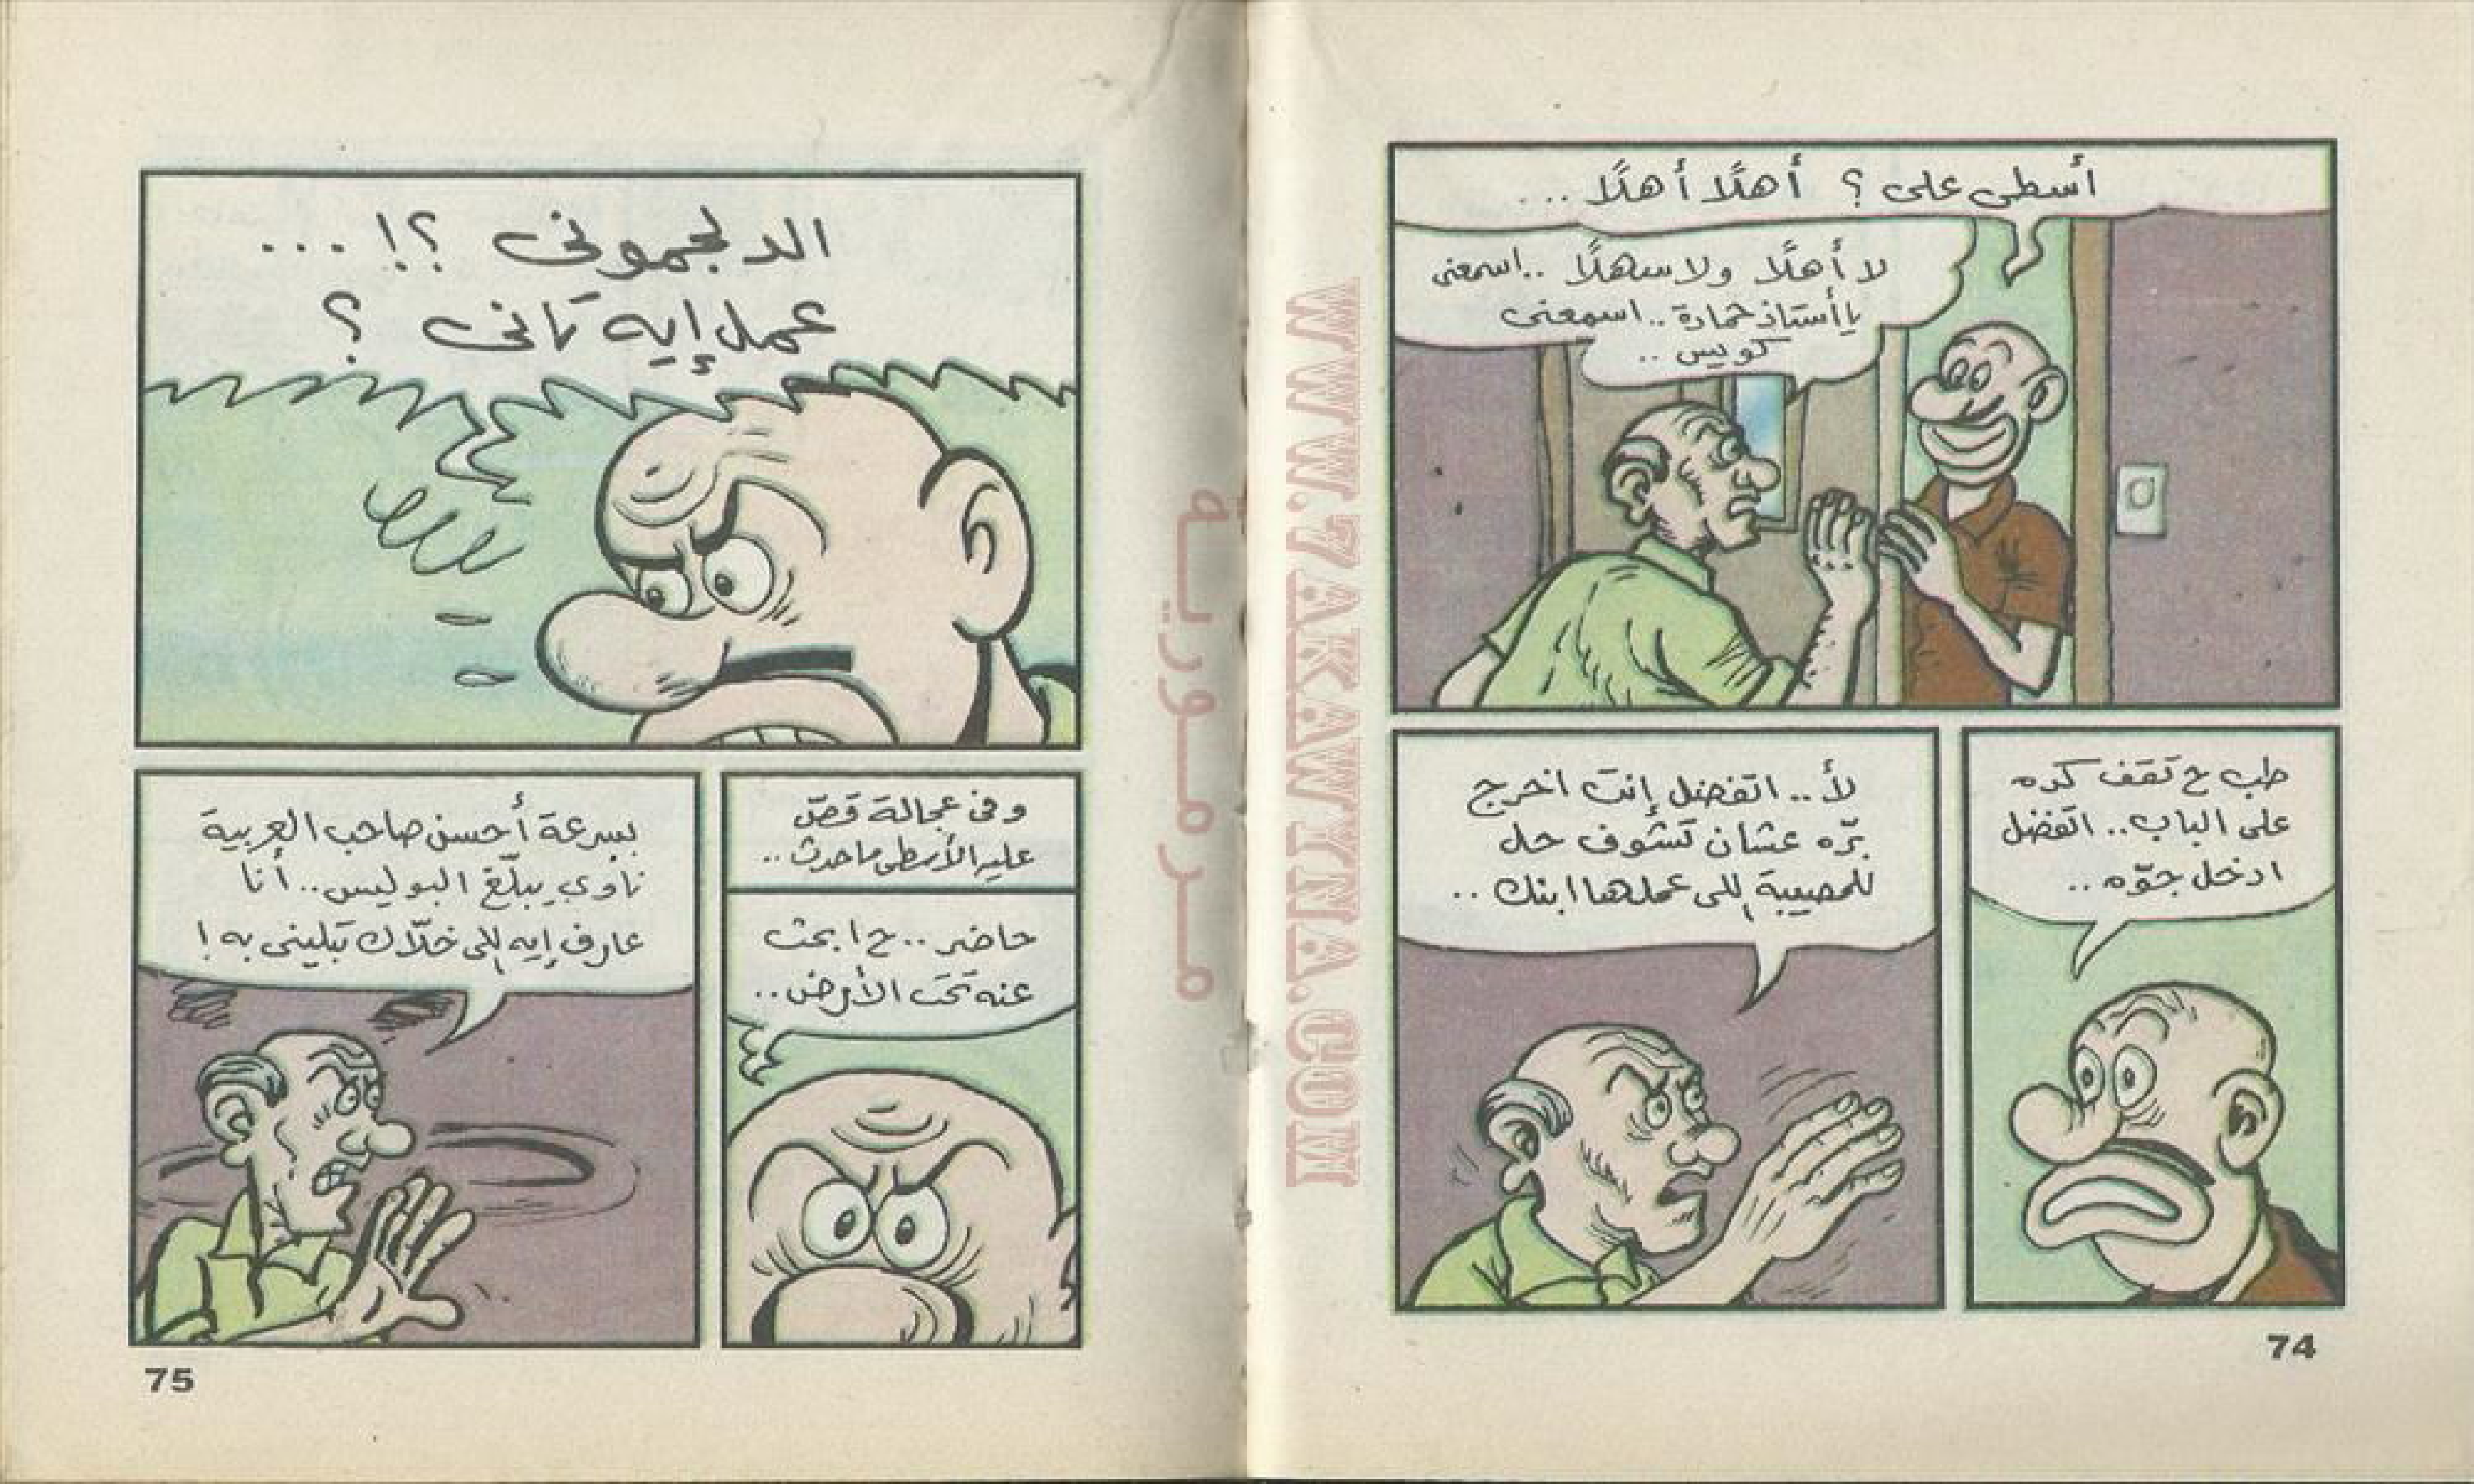 أسطى على ؟ أهلًا أهلًا ...
لا أهلًا ولا سهلًا .. اسمعنى
يا أستاذ حمادة .. اسمعنى
كويس ..
طب ح تقف كده
على الباب .. اتفضل
ادخل جوّه ..
لأ .. اتفضل إنت اخرج
برّه عشان تشوف حل
للمصيبة إللى عملها ابنك ..
74
الدلجمونى ؟! ...
عمل إيه تانى ؟
وفى عجالة قصّ
عليه الأسطى ما حدث ..
حاضر .. ح ابحث
عنه تحت الأرض ..
بسرعة أحسن صاحب العربية
ناوي يبلّغ البوليس .. أنا
عارف إيه إللى خلّاك تبلينى به !
75
مـرمـوريـة
WWW.7AKAWINA.COM